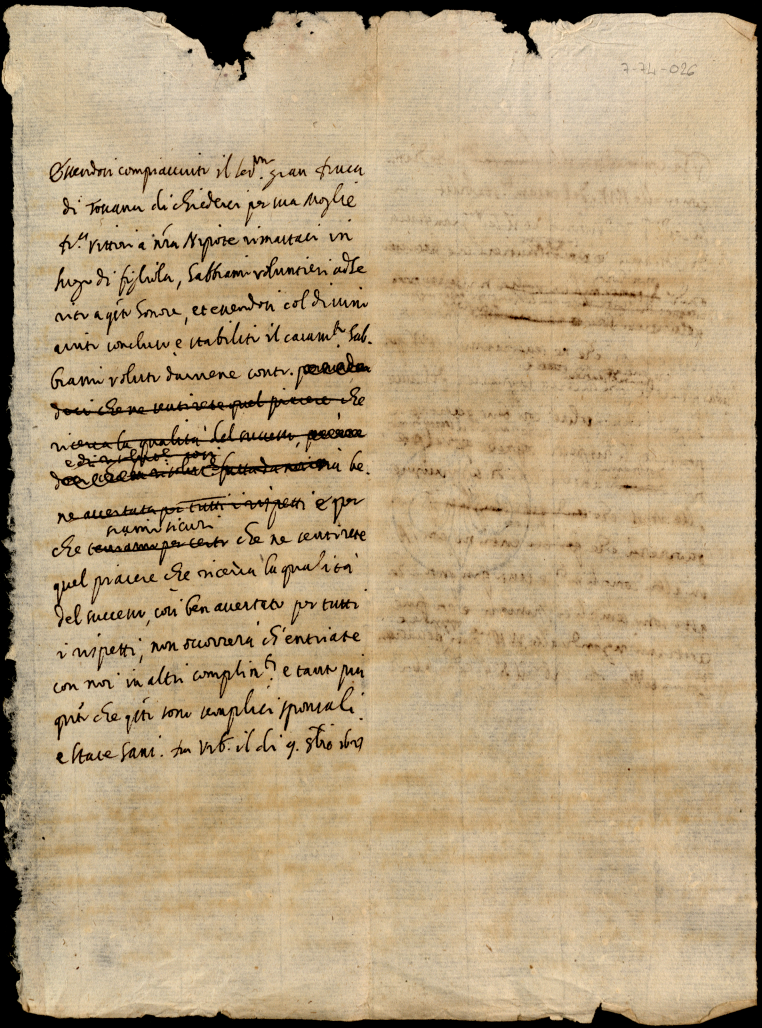 7-74-026
Essendosi compiacciuto il Ser.mo gran Duca
di Toscana di chiederci per sua moglie
D.a Vittoria n̄ra Nipote rimastaci in
luogo di figliola, habbiamo voluntieri ade
rito a q̄sto honore, et essendosi col divino
aiuto concluso e stabilito il casam.to hab-
biamo voluto darvene conto.
doci che ne sentirete quel piacere che
ricerca la qualità del successo,
fatta da noi be
ne avvertata per tutti i rispetti e per
siamo sicuri
che per certo che ne sentirete
quel piacere che ricerca la qualità
del successo, così ben avvertato per tutti
i rispetti, non occorrerà ch'entriate
con noi in altri complim.ti e tanto più
q̄sto che q̄sti sono semplici sponsali
e state sani. Urb. il di 9. 8bro